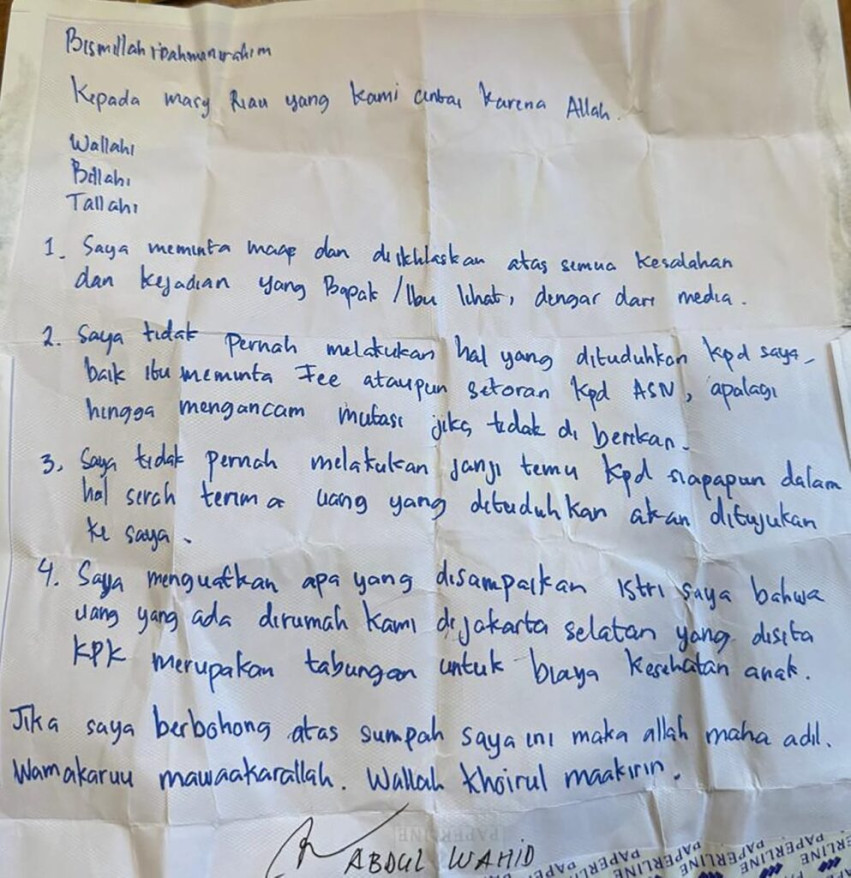 Bismillahirrahmanirrahim
Kepada masy Riau yang kami cintai karena Allah.
Wallahi
Billahi
Tallahi
1. Saya meminta maap dan diikhlaskan atas semua kesalahan
dan kejadian yang Bapak/Ibu lihat, dengar dari media.
2. Saya tidak pernah melakukan hal yang dituduhkan kpd saya,
baik itu meminta Fee ataupun setoran kpd ASN, apalagi
hingga mengancam mutasi jika tidak di berikan.
3. Saya tidak pernah melakukan janji temu kpd siapapun dalam
hal serah terima uang yang dituduhkan akan ditujukan
ke saya.
4. Saya menguatkan apa yang disampaikan istri saya bahwa
uang yang ada dirumah kami di jakarta selatan yang disita
KPK merupakan tabungan untuk biaya kesehatan anak.
Jika saya berbohong atas sumpah saya ini maka allah maha adil.
Wamakaruu mawaakarallah. Wallah khoirul maakirin.
ABDUL WAHID
PAPERLINE
PAPERLINE PAPERLINE PAPERLINE PAPERLINE